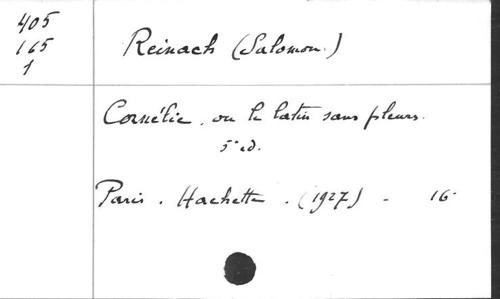 405
165
1
Reinach (Salomon.)
Cornélie, ou le latin sans pleurs.
5e ed.
Paris. Hachette. (1927) - 16-